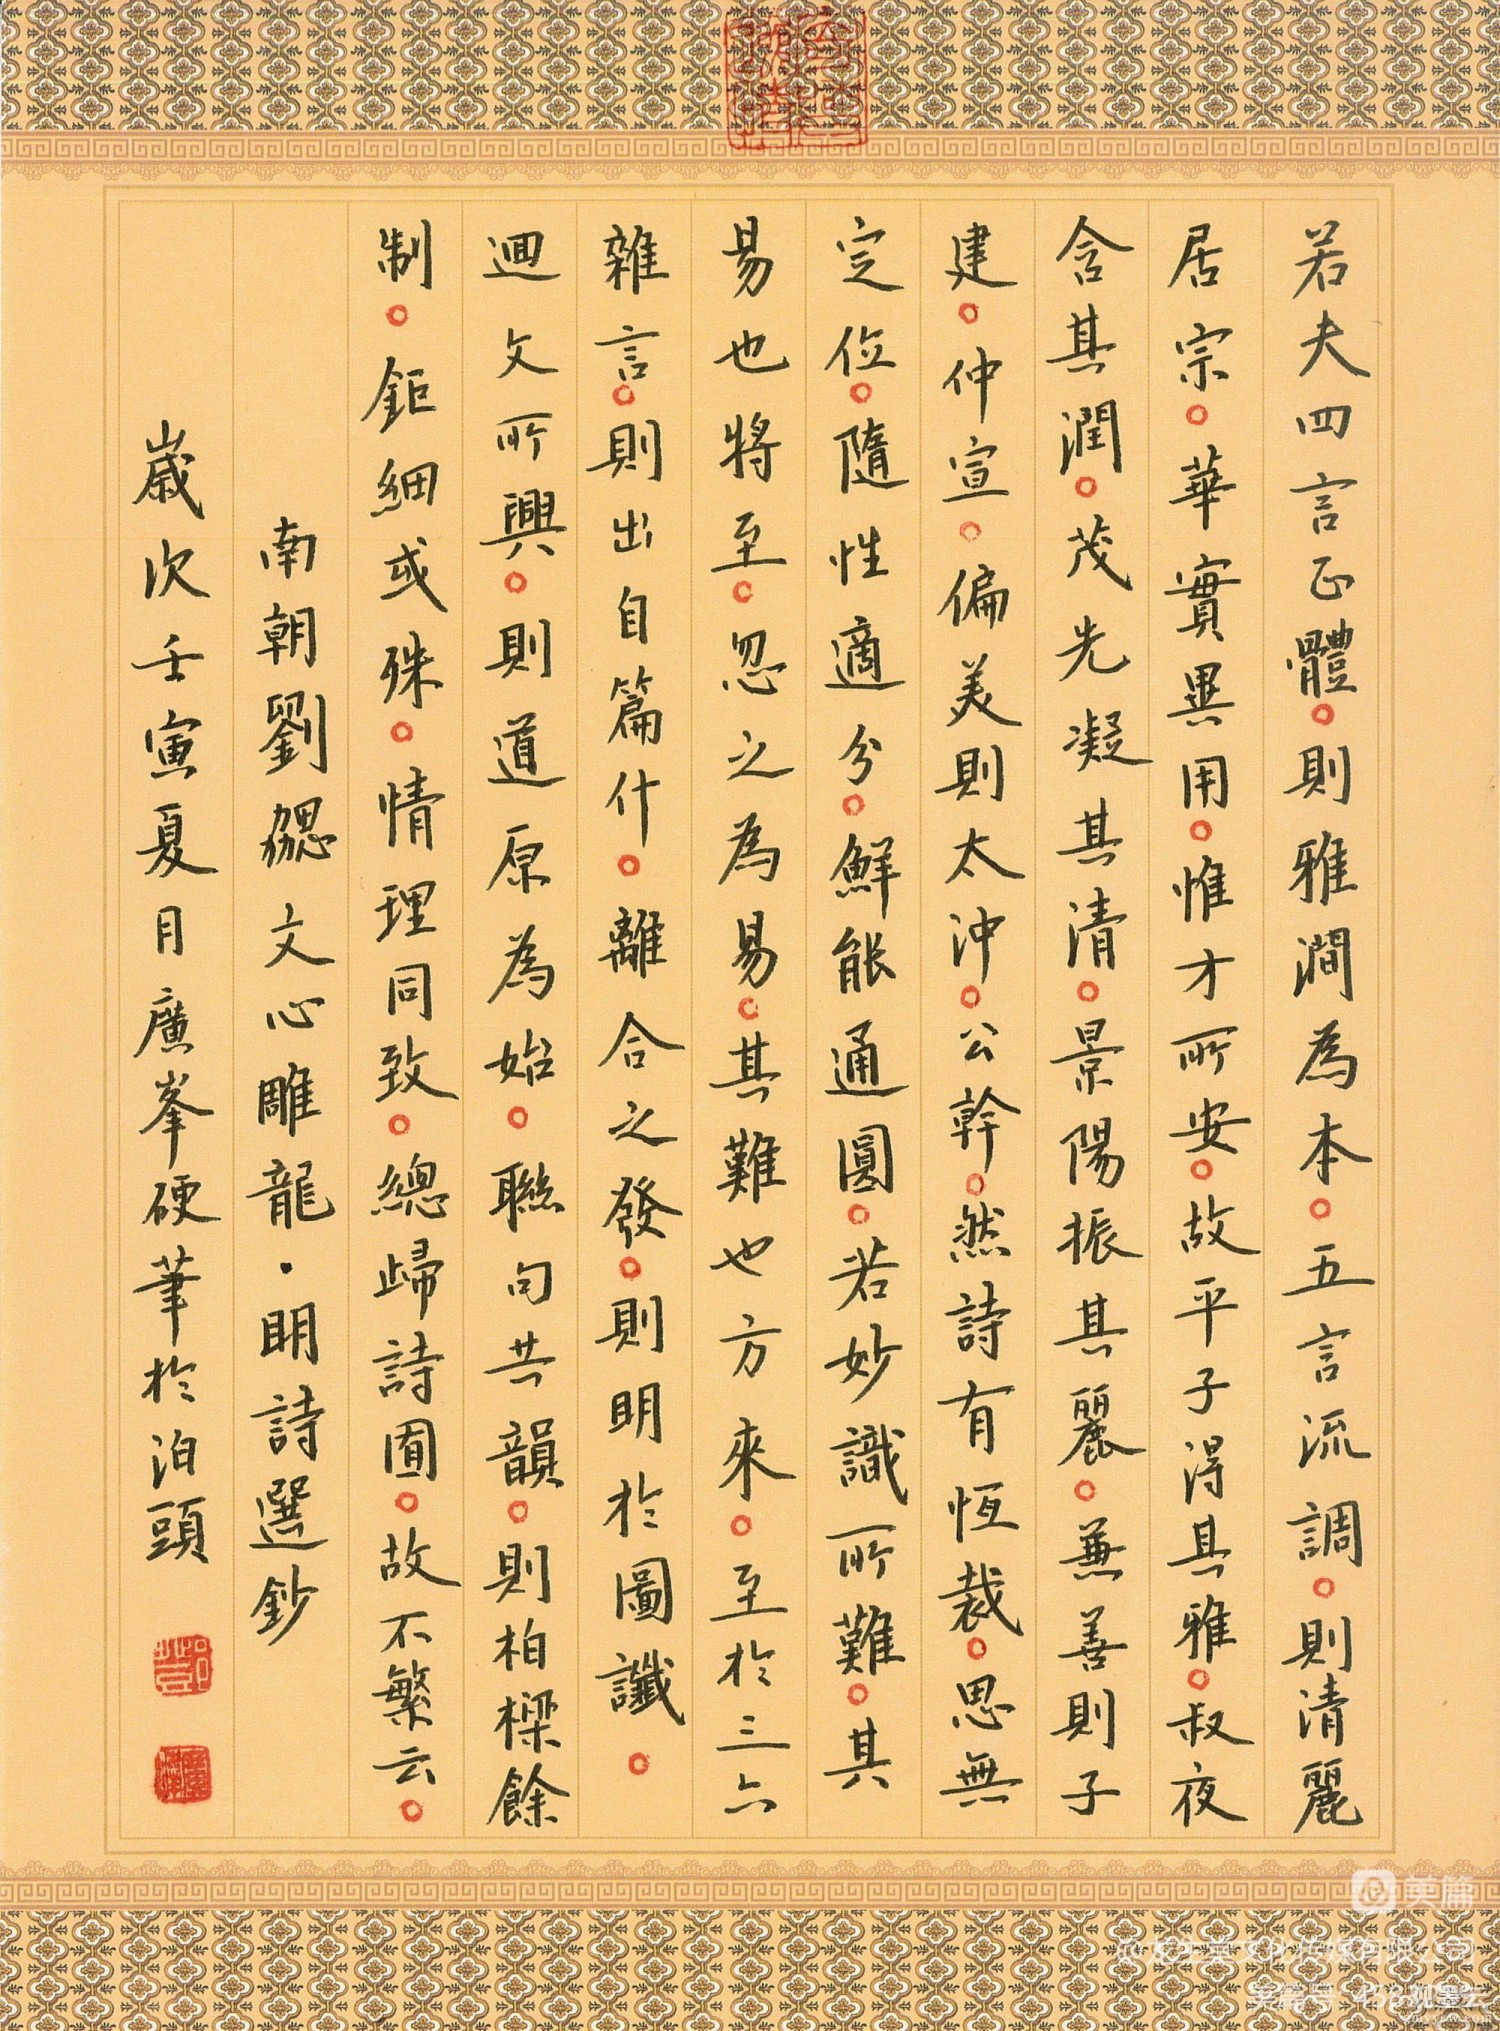 若夫四言正體。則雅潤為本。五言流調。則清麗
居宗。華實異用。惟才所安。故平子得其雅。叔夜
含其潤。茂先凝其清。景陽振其麗。兼善則子
建。仲宣。偏美則太沖。公幹。然詩有恆裁。思無
定位。隨性適分。鮮能通圓。若妙識所難。其
易也將至。忽之為易。其難也方來。至於三六
雜言。則出自篇什。離合之發。則明於圖讖。
迴文所興。則道原為始。聯句共韻。則柏樑餘
制。鉅細或殊。情理同致。總歸詩囿。故不繁云。
南朝劉勰文心雕龍·明詩選鈔
歲次壬寅夏月廣峯硬筆於泊頭
美篇
观墨云